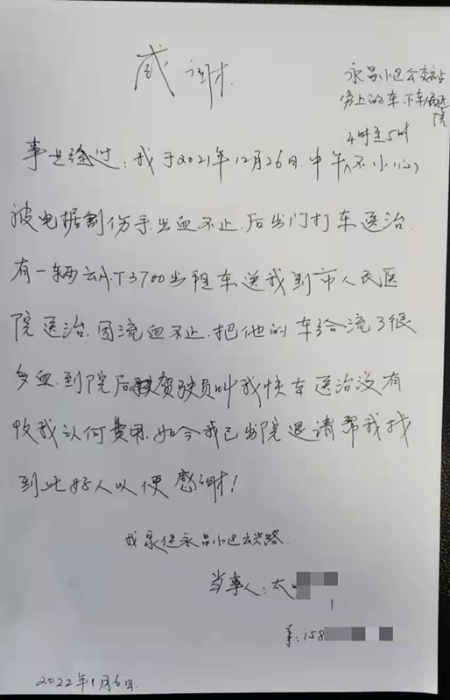 感谢
永昌小区公交站
旁上的车.下车在医
院
4时至5时
事业经过:我于2021年12月26日.中午(不小心)
被电据割伤手.出血不止.后出门打车医治.
有一辆云A.T3700出租车送我到市人民医
院医治.因流血不止.把他的车给流了很
多血.到院后驾驶员叫我快车医治没有
收我认何费用.如今我已出院.邀请帮我找
到此好人以便感谢!
我家住永昌小区云兴路.
当事人:太
手:158
2022年1月6日.